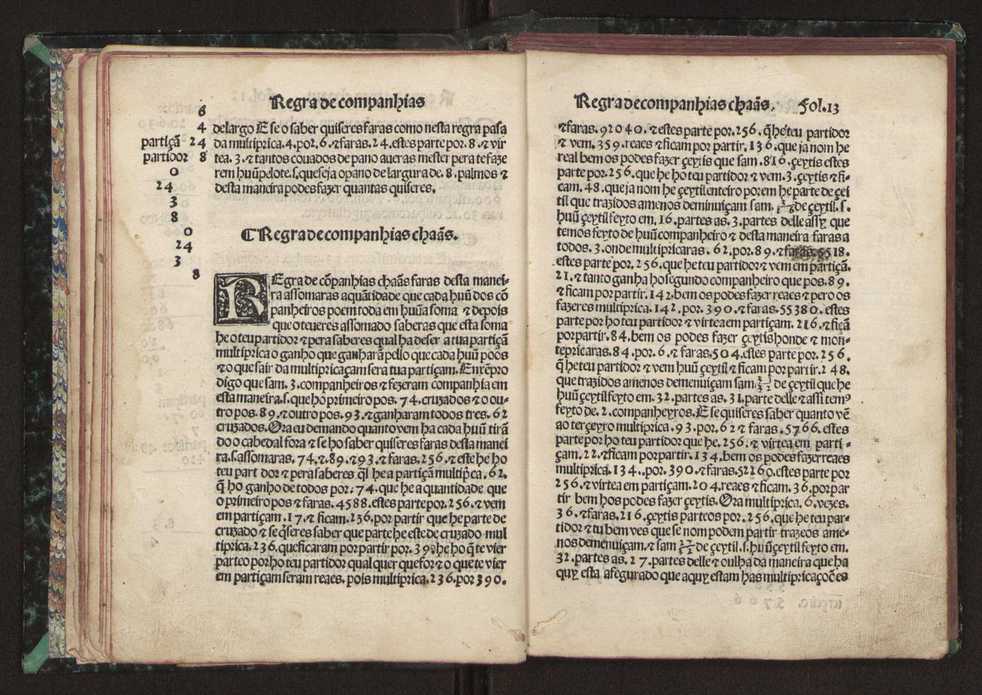 Regra de companhias
6
4
partiçã 24
partidor 8
0
24
3
8
0
24
3
8
de largo E se o saber quiseres faras como nesta regra pasa
da multiprica. 4. por. 6. ⁊ faras. 24. estes parte por. 8. ⁊ vir
tea. 3. ⁊ tantos couados de pano aueras mester pera te faze
rem huũ pelote. s. que seja o pano de largura de. 8. palmos ⁊
desta maneira podes fazer quantas quiseres.
¶ Regra de companhias chaãs.
REgra de cõpanhias chaãs faras desta manei-
ra assomaras a quãtidade que cada huũ dos cõ
panheiros poem toda em huũa soma ⁊ depois
que o teueres assomado saberas que esta soma
he o teu partidor ⁊ pera saberes qual ha deser a tua partiçã
multiprica o ganho que ganharã pello que cada huũ poos
⁊ o que sair da multipricaçam sera tua partiçam. Enxẽpro
digo que sam. 3. companheiros ⁊ fezeram companhia em
esta maneira. s. que ho primeiro pos. 74. cruzados ⁊ o ou-
tro pos. 89. ⁊ outro pos. 93. ⁊ ganharam todos tres. 62
cruzados. Ora eu demando quanto vem ha cada huũ tirã
do o cabedal fora ⁊ se ho saber quiseres faras desta manei
ra. s. assomaras. 74. ⁊. 89. ⁊ 93. ⁊ faras. 256. ⁊ este he ho
teu part dor ⁊ pera saberes q̃l he a partiçã multip̃ca. 62.
q̃ ho ganho de todos por: 74. que he a quantidade que
o primeiro pos ⁊ faras. 4588. estes parte por. 256. ⁊ vem
em partiçam. 17. ⁊ ficam. 236. por partir que he parte de
cruzado ⁊ se q̃seres saber que parte he este de cruzado mul
tiprica. 236. que ficaram por partir por. 390 he ho q̃ te vier
parte o por ho teu partidor qual quer que for ⁊ o que te vier
em partiçam seram reaes. pois multiprica. 236. por 390.
Regra de companhias chaãs. Fol. 13
⁊ faras. 92040. ⁊ estes parte por. 256. q̃ he teu partidor
⁊ vem. 359. reaes ⁊ ficam por partir. 136. que ja nom he
real bem os podes fazer çeytis que sam. 816. çeytis estes
parte por. 256. que he ho teu partidor ⁊ vem. 3. çeytis ⁊ fi-
cam. 48. que ja nom he çeytil enteiro porem he parte de çei
til que trazidos a menos deminuiçam sam. de çeytil. s.
huũ çeytil feyto em. 16. partes as. 3. partes delle assy que
temos feyto de huũ companheiro ⁊ desta maneira faras a
todos. 3. onde multipricaras. 62. por. 89. ⁊ faras. 5518.
estes parte por. 256. que he teu partidor ⁊ vem em partiçã.
21. ⁊ tanto ganha ho segundo companheiro que pos. 89.
⁊ ficam por partir. 142. bem os podes fazer reaes ⁊ pero os
fazeres multiprica. 142. por. 390. ⁊ faras. 55380. estes
parte por ho teu partidor ⁊ virtea em partiçam. 216. ⁊ ficã
por partir. 84. bem os podes fazer çeytis honde ⁊ mon-
tepricaras. 84. por. 6. ⁊ faras. 504. estes parte por. 256.
q̃ he teu partidor ⁊ vem huũ çeytil ⁊ ficam por partir. 248.
que trazidos a menos demenuiçam sam de çeytil que he
huũ çeytil feyto em. 32. partes as. 31. parte delle ⁊ assi tem⁹
feyto de. 2. companheyros. E se quiseres saber quanto vẽ
ao terçeyro multiprica. 93. por. 62 ⁊ faras. 5766. estes
parte por ho teu partidor que he. 256. ⁊ virtea em parti-
çam. 22. ⁊ ficam por partir. 134. bem os podes fazer reaes
multiprica. 134. por. 390. ⁊ faras. 52260. estes parte por
256. ⁊ virtea em partiçam. 204. reaes ⁊ ficam. 36. por par
tir bem hos podes fazer çeytis. Ora multiprica. 6. vezes.
36. ⁊ faras. 216. çeytis parteos por. 256. que he teu par-
tidor ⁊ tu bem ves que se nom podem partir trazeos a me-
nos demenuiçam. ⁊ sam de çeytil. s. huũ çeytil feyto em.
32. partes as. 27. partes delle ⁊ oulha da maneira que ha
quy esta afegurado que aquy estam has multipricaçoões